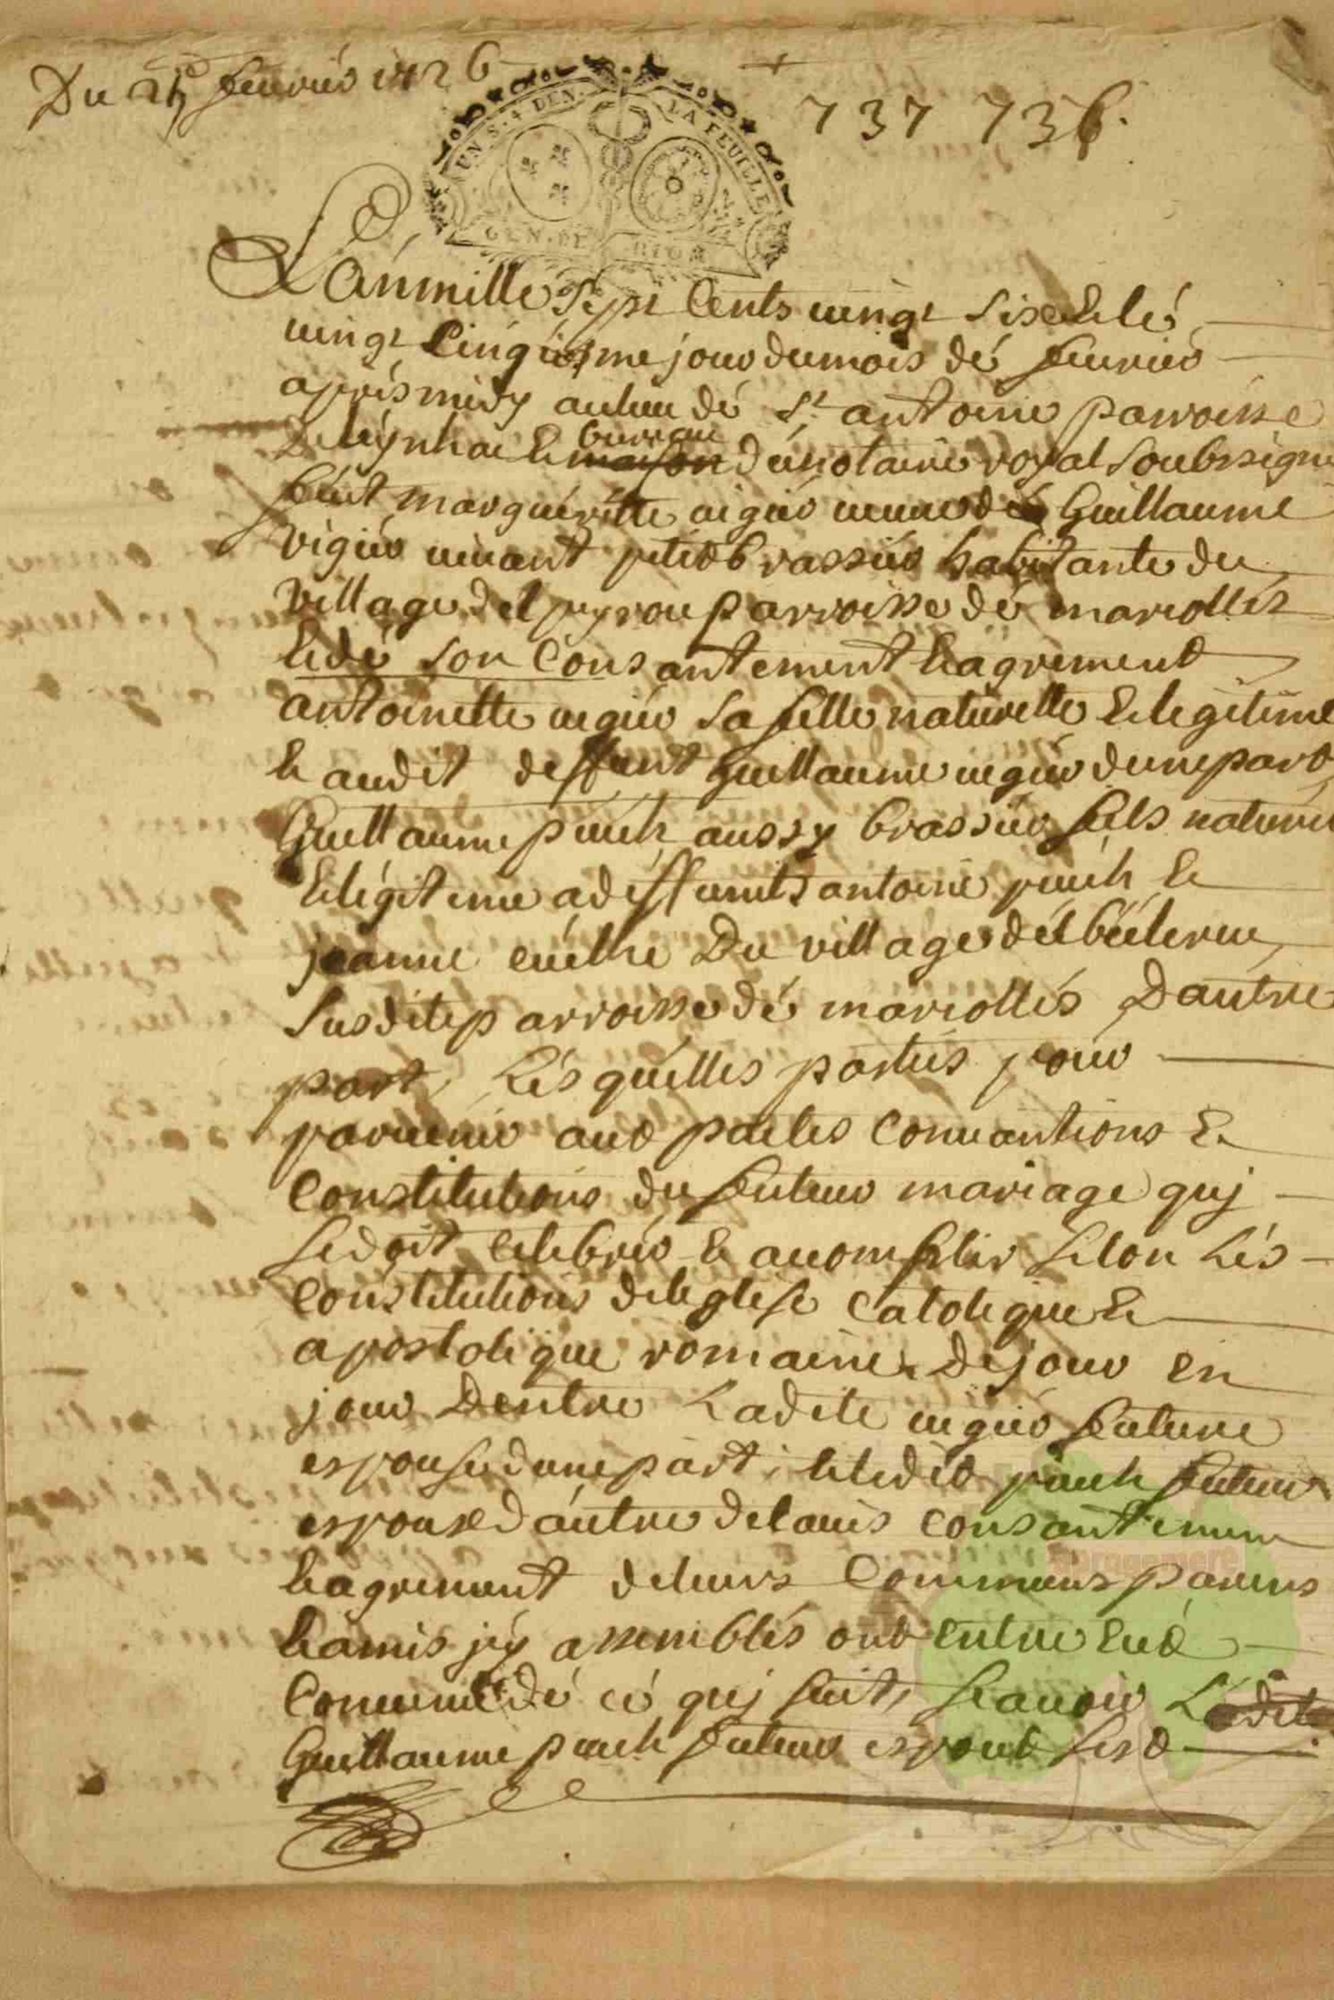 Du 25e feurier 1726
737 736
UN S. 4 DEN. LA FEUILLE
GEN. DE RIOM
L'an mille sept cents uingt six et le
uingt cinquiesme jour du mois de feurier
apres midy au lieu de St antoine parroisse
bureau
de leynhac et maison du notaire royal soubsigné
feut marguéritte uigier ueuue de Guillaume
vigier uiuant petit brassier habitante du
village del puyrou parroisse de mariolles
et de son consantement et agrement
antoinette uigier sa fille naturelle et legitime
et audit deffunt Guillaume uigier dune part
Guillaume puech aussy brassier fils naturel
et légitime a deffunts antoine puech et
jeanne du village del
susdite parroisse de mariolles Dautre
part, Lés quélles parties pour
paruenir aux pactes conuantions et
constitutions du futeur mariage quj
se doit celebrer et accomplir selon Lés
constitutions de leglise catolique et
apostolique romaine de jour en
jour Dentre Ladite uigier future
espouse dune part, et ledit puech futeur
espoux dautre de lauis consantement
et agrement de leurs communs parens
et amis jcy assemblés ont entre eux
conuenu de ce quj suit, scauoir Ledit
Guillaume puech futeur espoux sest